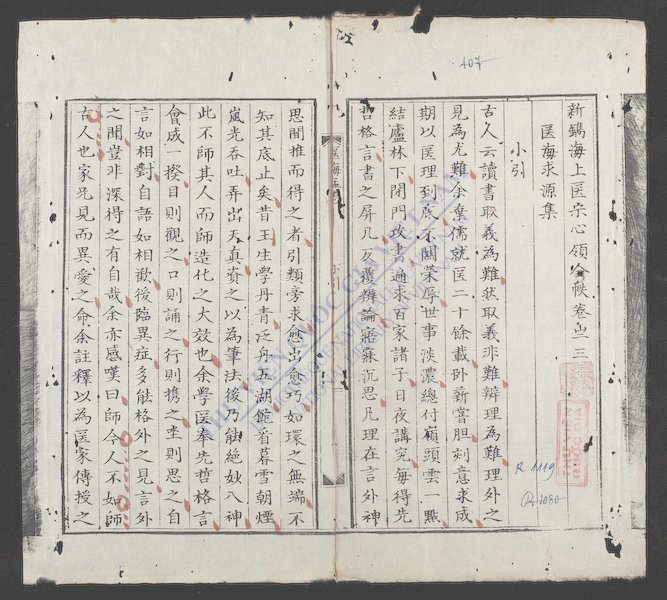 新鐫海上医宗心領全帙卷之三
医海求源集
小引
古人云讀書取義為難然取義非難辨理為難理外之
見為尤難余棄儒就医二十餘載卧薪嘗胆刻意求成
期以医理到底不關榮辱世事淡濃總付嶺頭雲一點
結廬林下閉門攻書遍求百家諸子日夜講究每得先
哲格言書之屏几反覆辨論寤寐沉思凡理在言外神
思間推而得之者引類旁求愈出愈巧如環之無端不
知其底止矣昔王生學丹青泛舟五湖飽看暮雪朝煙
嵐光吞吐弄出天真資之以為筆法後乃能絕妙入神
此不師其人而師造化之大效也余學医奉先哲格言
會成一揆目則觀之口則誦之行則携之坐則思之自
言如相對自語如相歡後臨異症多能格外之見言外
之聞豈非深得之有自哉余亦感嘆曰師今人不如師
古人也家兄見而異愛之命余註釋以為医家傳授之
407
R.1119
R.1080